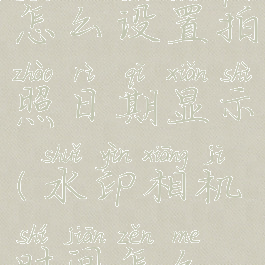 怎么设置拍
zhào rì qī xiǎn shì
照日期显示
shuǐ yìn xiàng jī
（水印相机
shí jiān zěn me
时间怎么